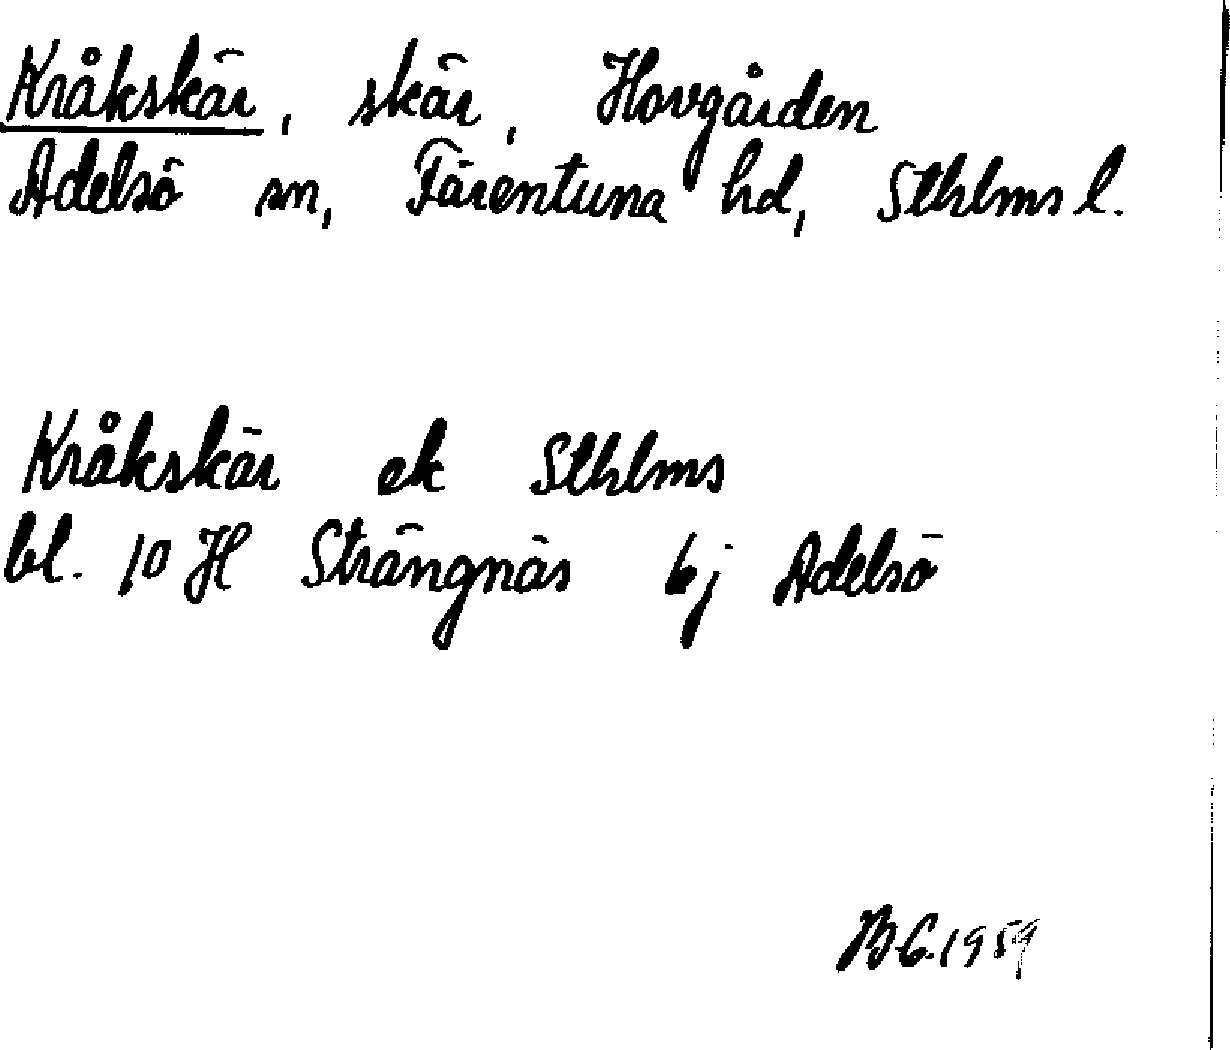 Kråkskär, skär, Hovgården
Adelsö sn, Färentuna hd, Sthlms l.
Kråkskär ek Sthlms
bl. 10 H Strängnäs 6j Adelsö
B G. 1959